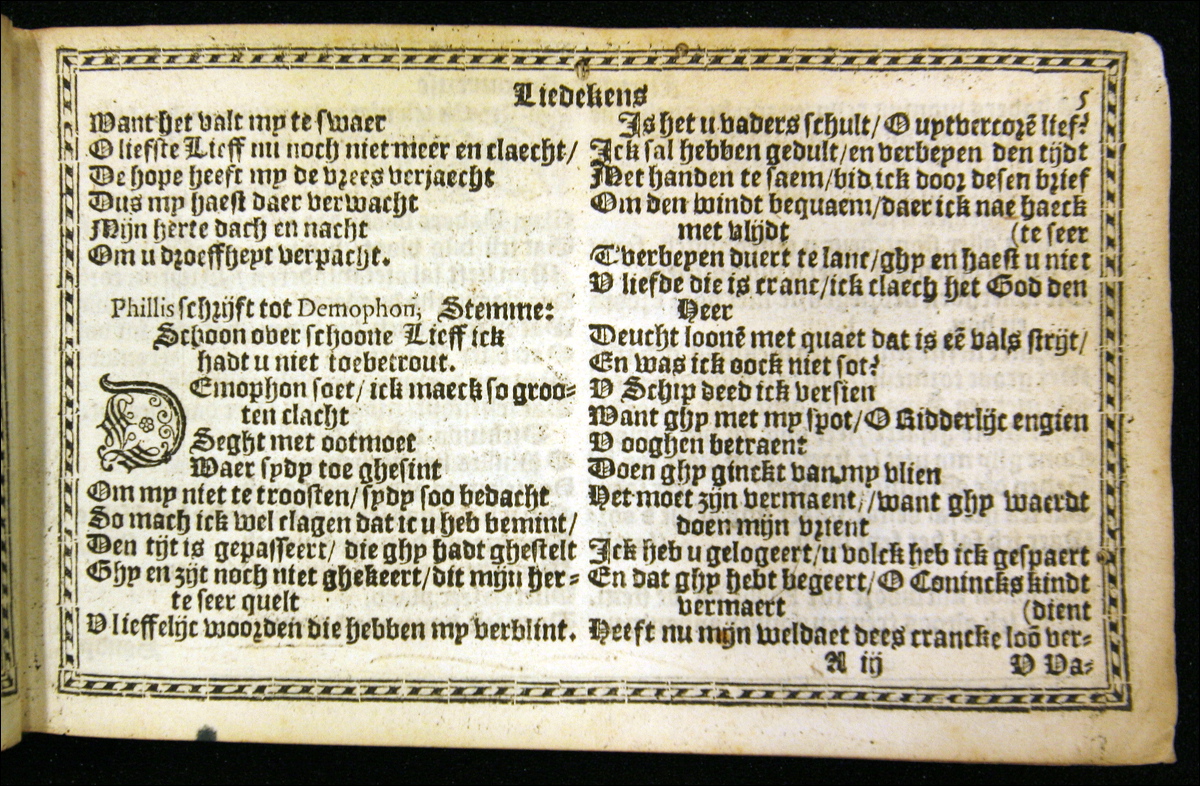 Liedekens
5
Want het valt my te swaer
O liefste Lieff nu noch niet meer en claecht/
De hope heeft my de vrees verjaecht
Dus my haest daer verwacht
Mijn herte dach en nacht
Om u droeffheyt verpacht.
Phillis schrijft tot Demophon, Stemme:
Schoon over schoone Lieff ick
hadt u niet toebetrout.
DEmophon soet/ ick maeck so groo-
ten clacht
Seght met ootmoet
Waer sydy toe ghesint
Om my niet te troosten/ sydy soo bedacht
So mach ick wel clagen dat ic u heb bemint/
Den tijt is gepasseert/ die ghy hadt ghestelt
Ghy en zijt noch niet ghekeert/dit mijn her-
te seer quelt
V lieffelijc woorden die hebben my verblint.
Is het u vaders schult/ O uytvercorē lief?
Ick sal hebben gedult/en verbeyen den tijdt
Met handen te saem/bid ick door desen brief
Om den windt bequaem/daer ick nae haeck
met vlijdt (te seer
T'verbeyen duert te lanc/ghy en haest u niet
V liefde die is cranc/ick claech het God den
Heer
Deucht loonē met quaet dat is eē vals strijt/
En was ick oock niet sot?
V Schip deed ick versien
Want ghy met my spot/O Ridderlijc engien
V ooghen betraent
Doen ghy ginckt van my vlien
Het moet zijn vermaent,/want ghy waerdt
doen mijn vrient
Ick heb u gelogeert/u volck heb ick gespaert
En dat ghy hebt begeert/O Conincks kindt
vermaert (dient
Heeft nu mijn weldaet dees crancke loō ver-
A iij
V Va-